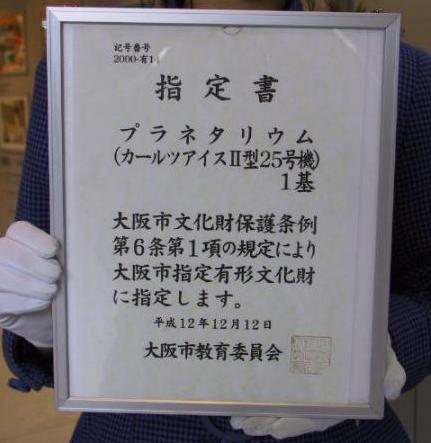 記号番号
2000-有14
指定書
プラネタリウム
(カールツアイスⅡ型25号機)
1基
大阪市文化財保護条例
第6条第1項の規定により
大阪市指定有形文化財
に指定します。
平成12年12月12日
大阪市教育委員会